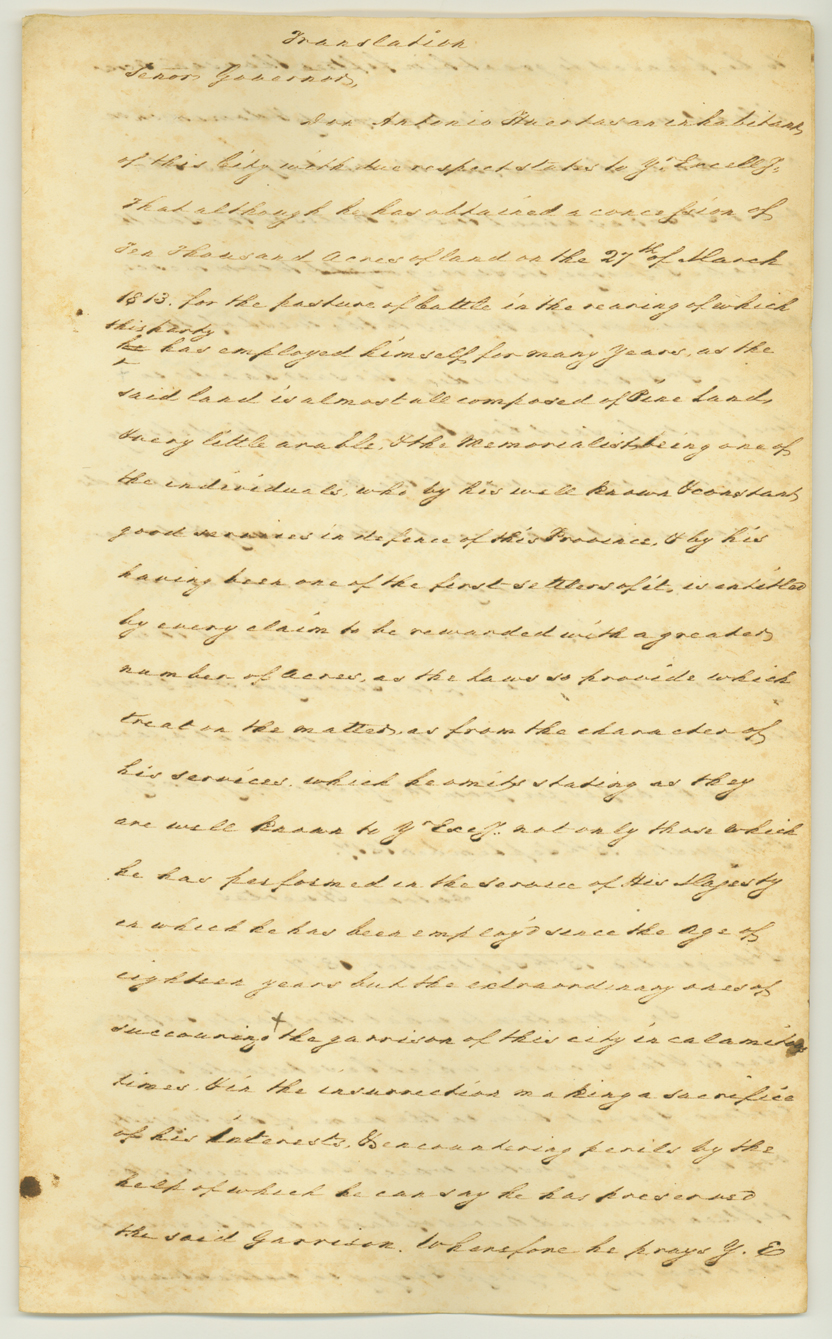 Translation
Senor Governor,
Don Antonio Huertas an inhabitant
of this City with due respect states to Yr. Excelly.
That although he has obtained a concession of
Ten Thousand Acres of land on the 27th of March
1813. for the pasture of Cattle in the rearing of which
this party
he has employed himself for many years, as the
said land is almost all composed of Pine Land,
& very little arable, & the Memorialist being one of
the individuals, who by his well known & constant
good services in defence of this Province, & by his
having been one of the first settlers of it, is entitled
by every claim to be rewarded with a greater
number of Acres, as the Laws so provide which
treat on the matter, as from the character of
his services, which he omits stating as they
are well known to Yr Exc̃y. not only those which
he has performed in the service of His Majesty
in which he has been employ'd since the Age of
eighteen years but the extraordinary ones of
succouring + the garrison of this city in calamitous
times. & in the insurrection making a sacrifice
of his Interests, & encountering perils by the
help of which he can say he has preserved
the said Garrison. Wherefore he prays Y. E